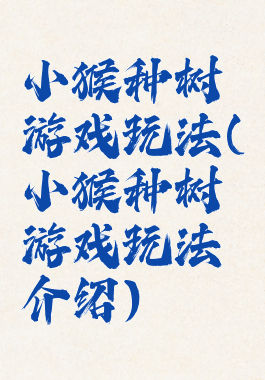 小猴种树
游戏玩法(
小猴种树
游戏玩法
介绍)